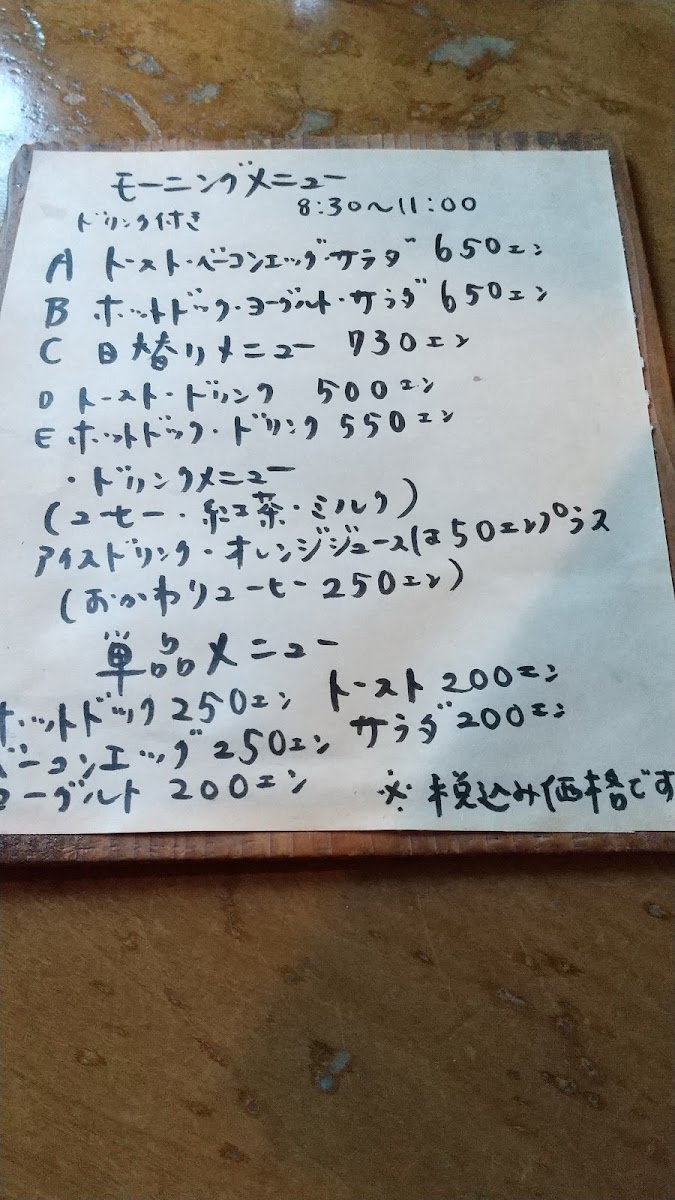 モーニングメニュー
8:30〜11:00
ドリンク付き
A トースト・ベーコンエッグ・サラダ 650エン
B ホットドック・ヨーグルト・サラダ 650エン
C 日替りメニュー 730エン
D トースト・ドリンク 500エン
E ホットドック・ドリンク 550エン
・ドリンクメニュー
(コーヒー・紅茶・ミルク)
アイスドリンク・オレンジジュースは50エンプラス
(おかわりコーヒー 250エン)
単品メニュー
ホットドック 250エン トースト 200エン
ベーコンエッグ 250エン サラダ 200エン
ヨーグルト 200エン ※税込み価格です